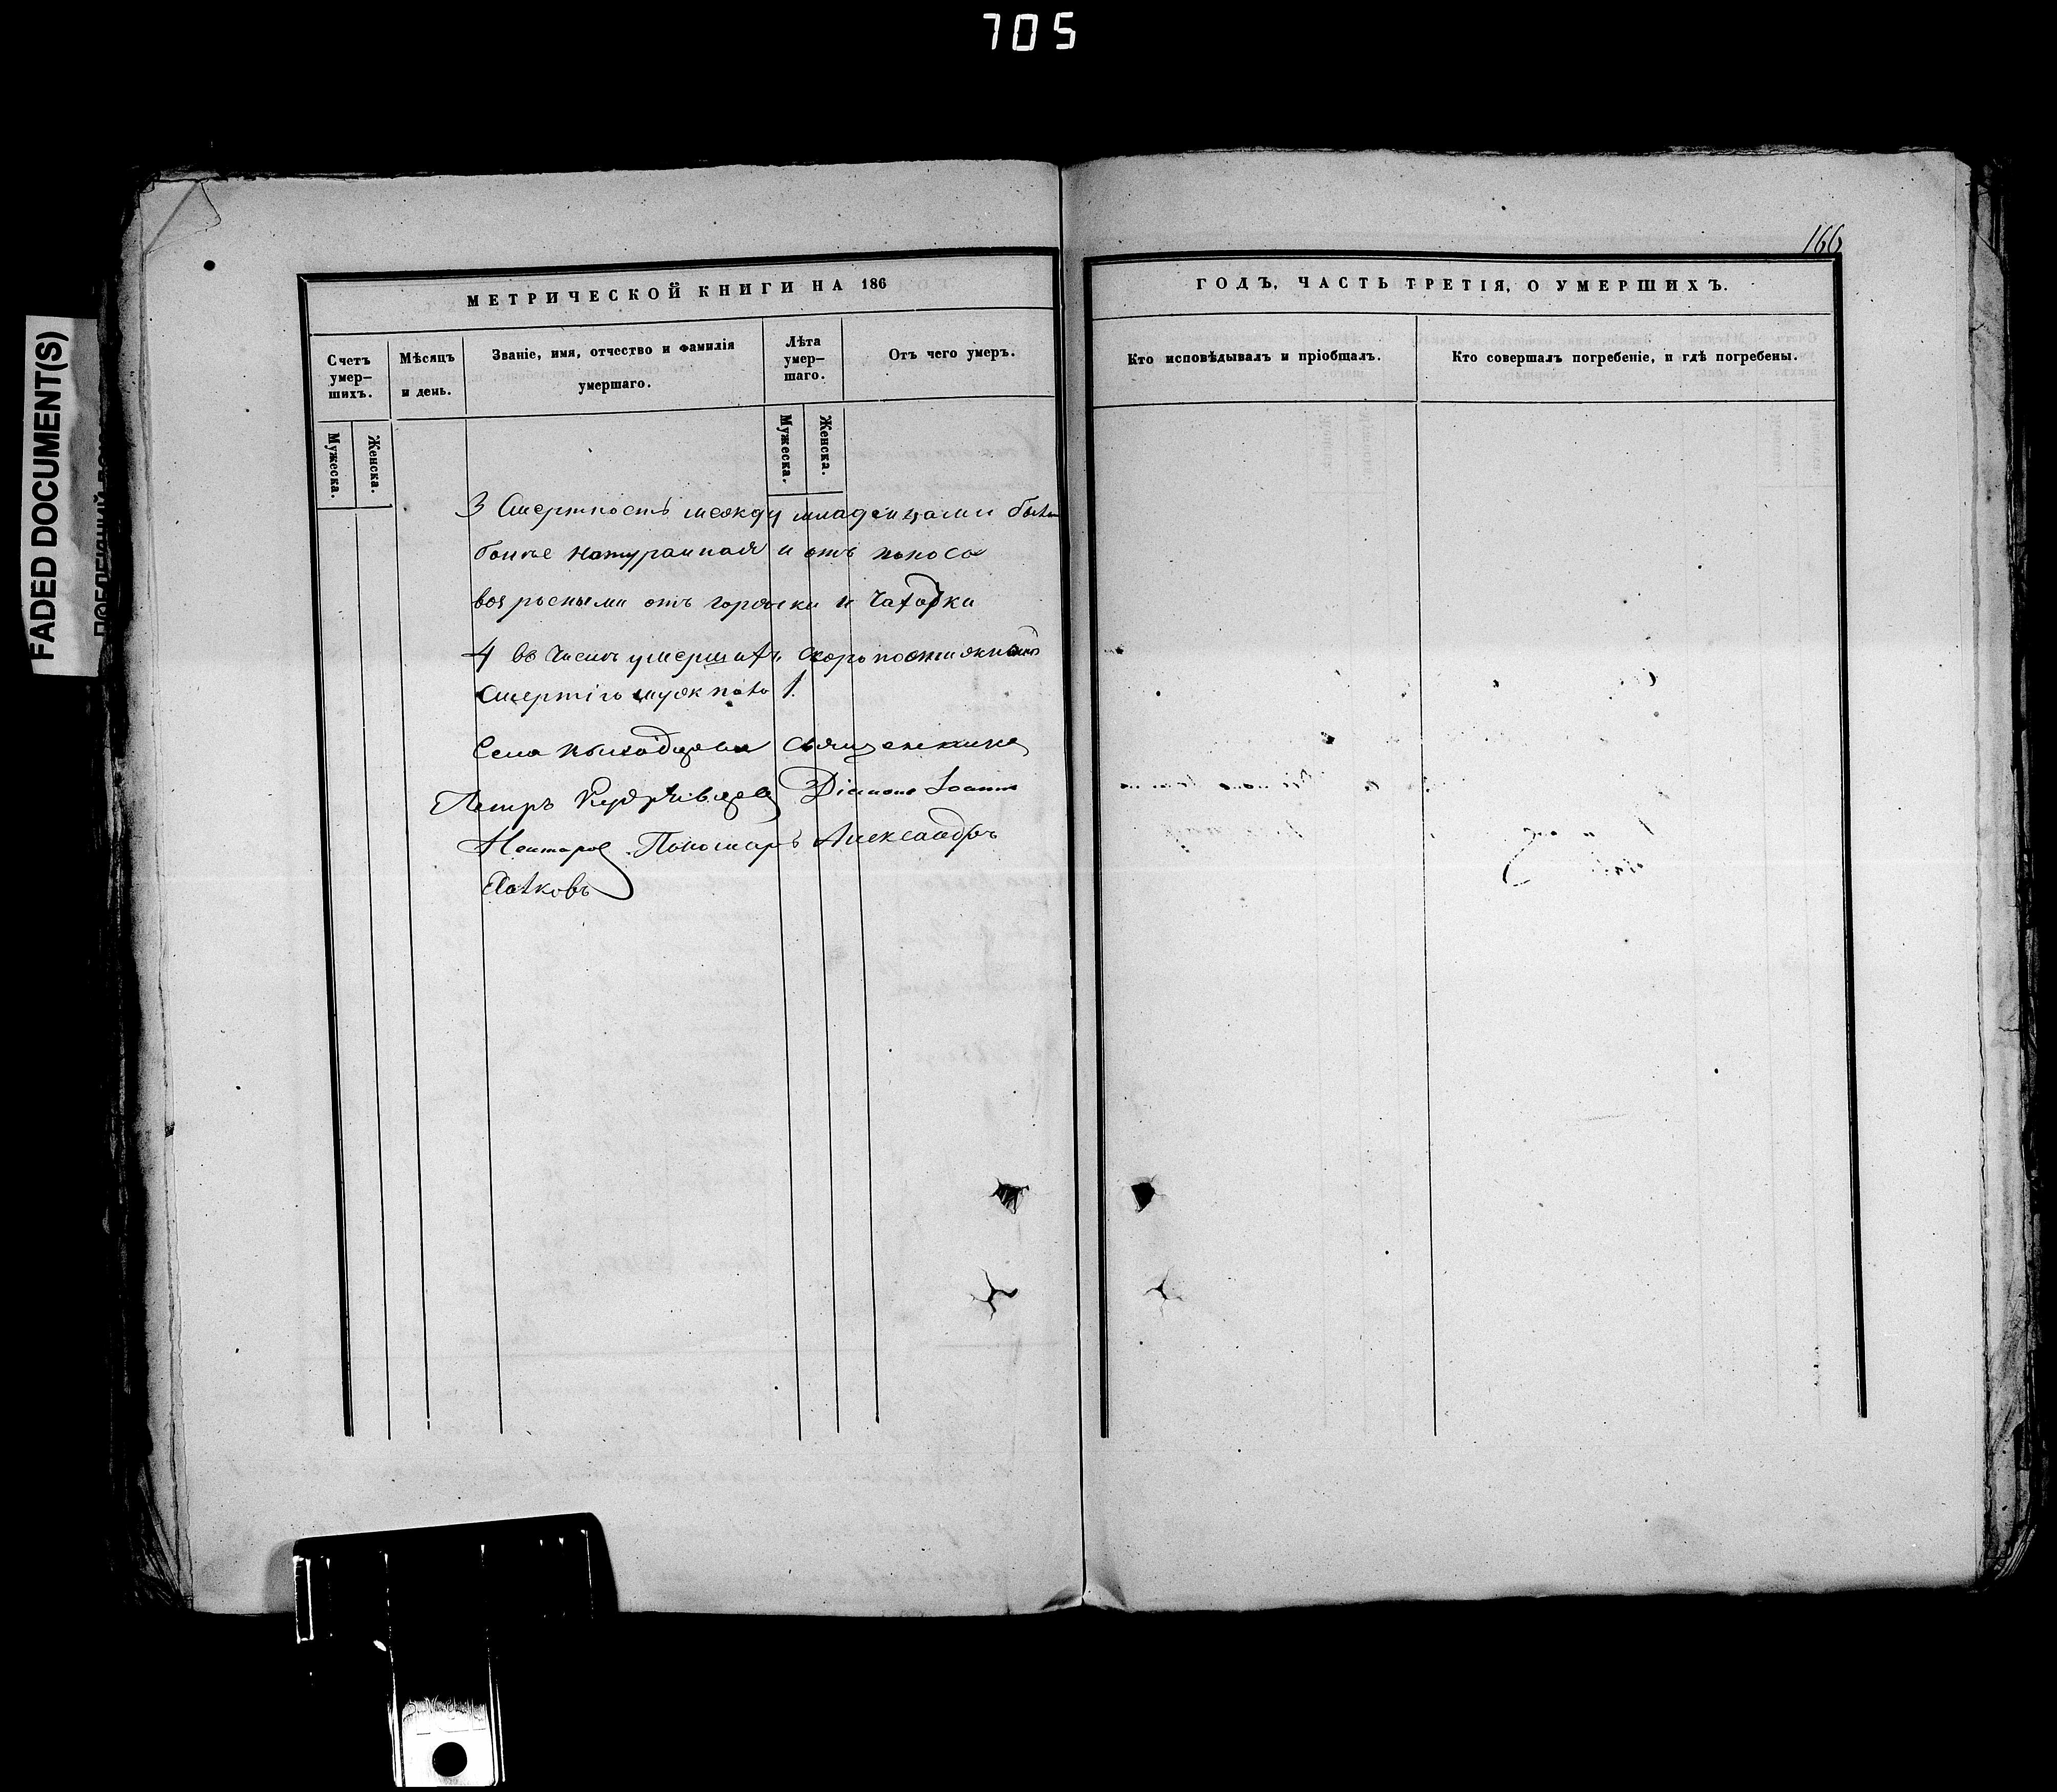 705
FADED DOCUMENT(S)
166
МЕТРИЧЕСКОЙ КНИГИ НА 186
ГОДЪ, ЧАСТЬ ТРЕТІЯ, О УМЕРШИХЪ.
Счетъ умер-шихъ.
Мѣсяцъ и день.
Званіе, имя, отчество и фамилія умершаго.
Лѣта умер-шаго.
Отъ чего умеръ.
Кто исповѣдывалъ и пріобщалъ.
Кто совершалъ погребеніе, и гдѣ погребены.
Мужеска.
Женска.
Мужеска.
Женска.
3 Смертность между младенцами была
более натуральная и отъ поноса
возрасными отъ горячки и чахотки
4 въ числѣ умершихъ скоропостижною
смертію мужпола 1.
Села священника
Петръ Кудрявцевъ Діаконъ Іоаннъ
Пономарь Александръ